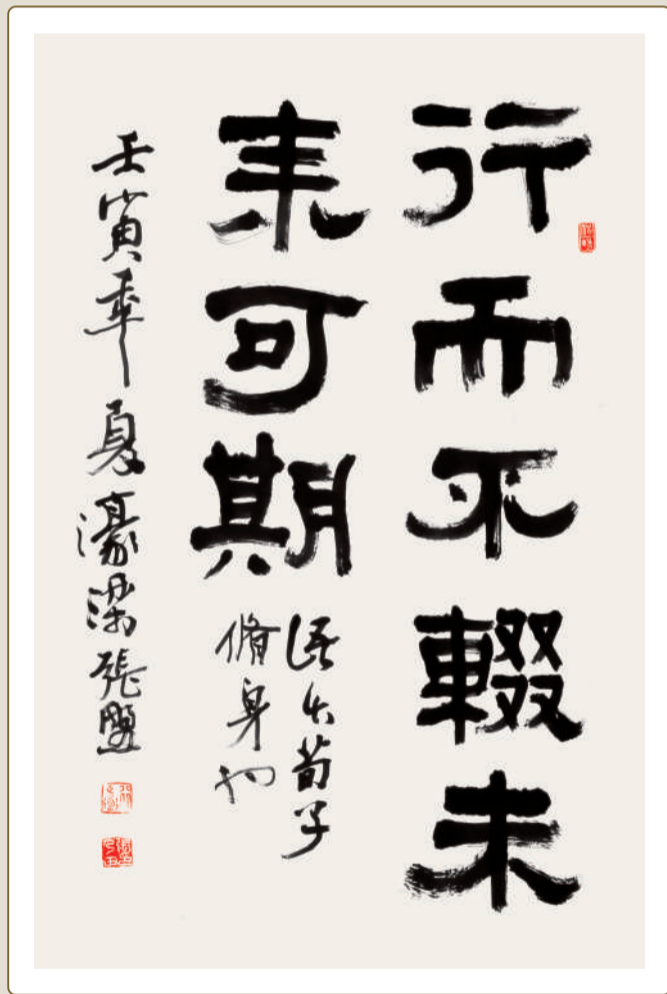 行而不輟未
来可期
语出荀子
脩身
壬寅年夏濠梁張